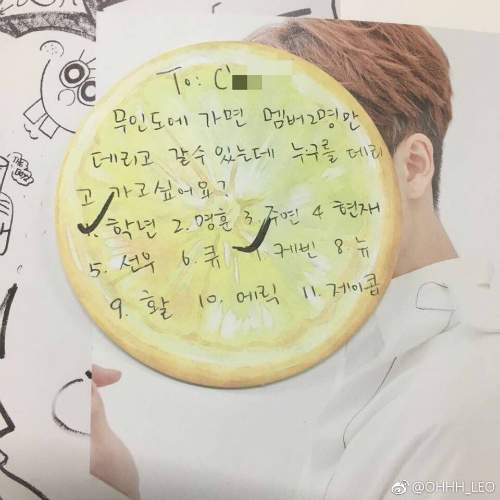 To: C'
무인도에 가면 멤버2명만
데리고 갈수 있는데 누구를 데리
고 가고싶어요?
1. 학년 2. 영훈 3. 주연 4. 현재
5. 선우 6. 큐 7. 케빈 8. 뉴
9. 활 10. 에릭 11. 제이콥
@OHHH_LEO